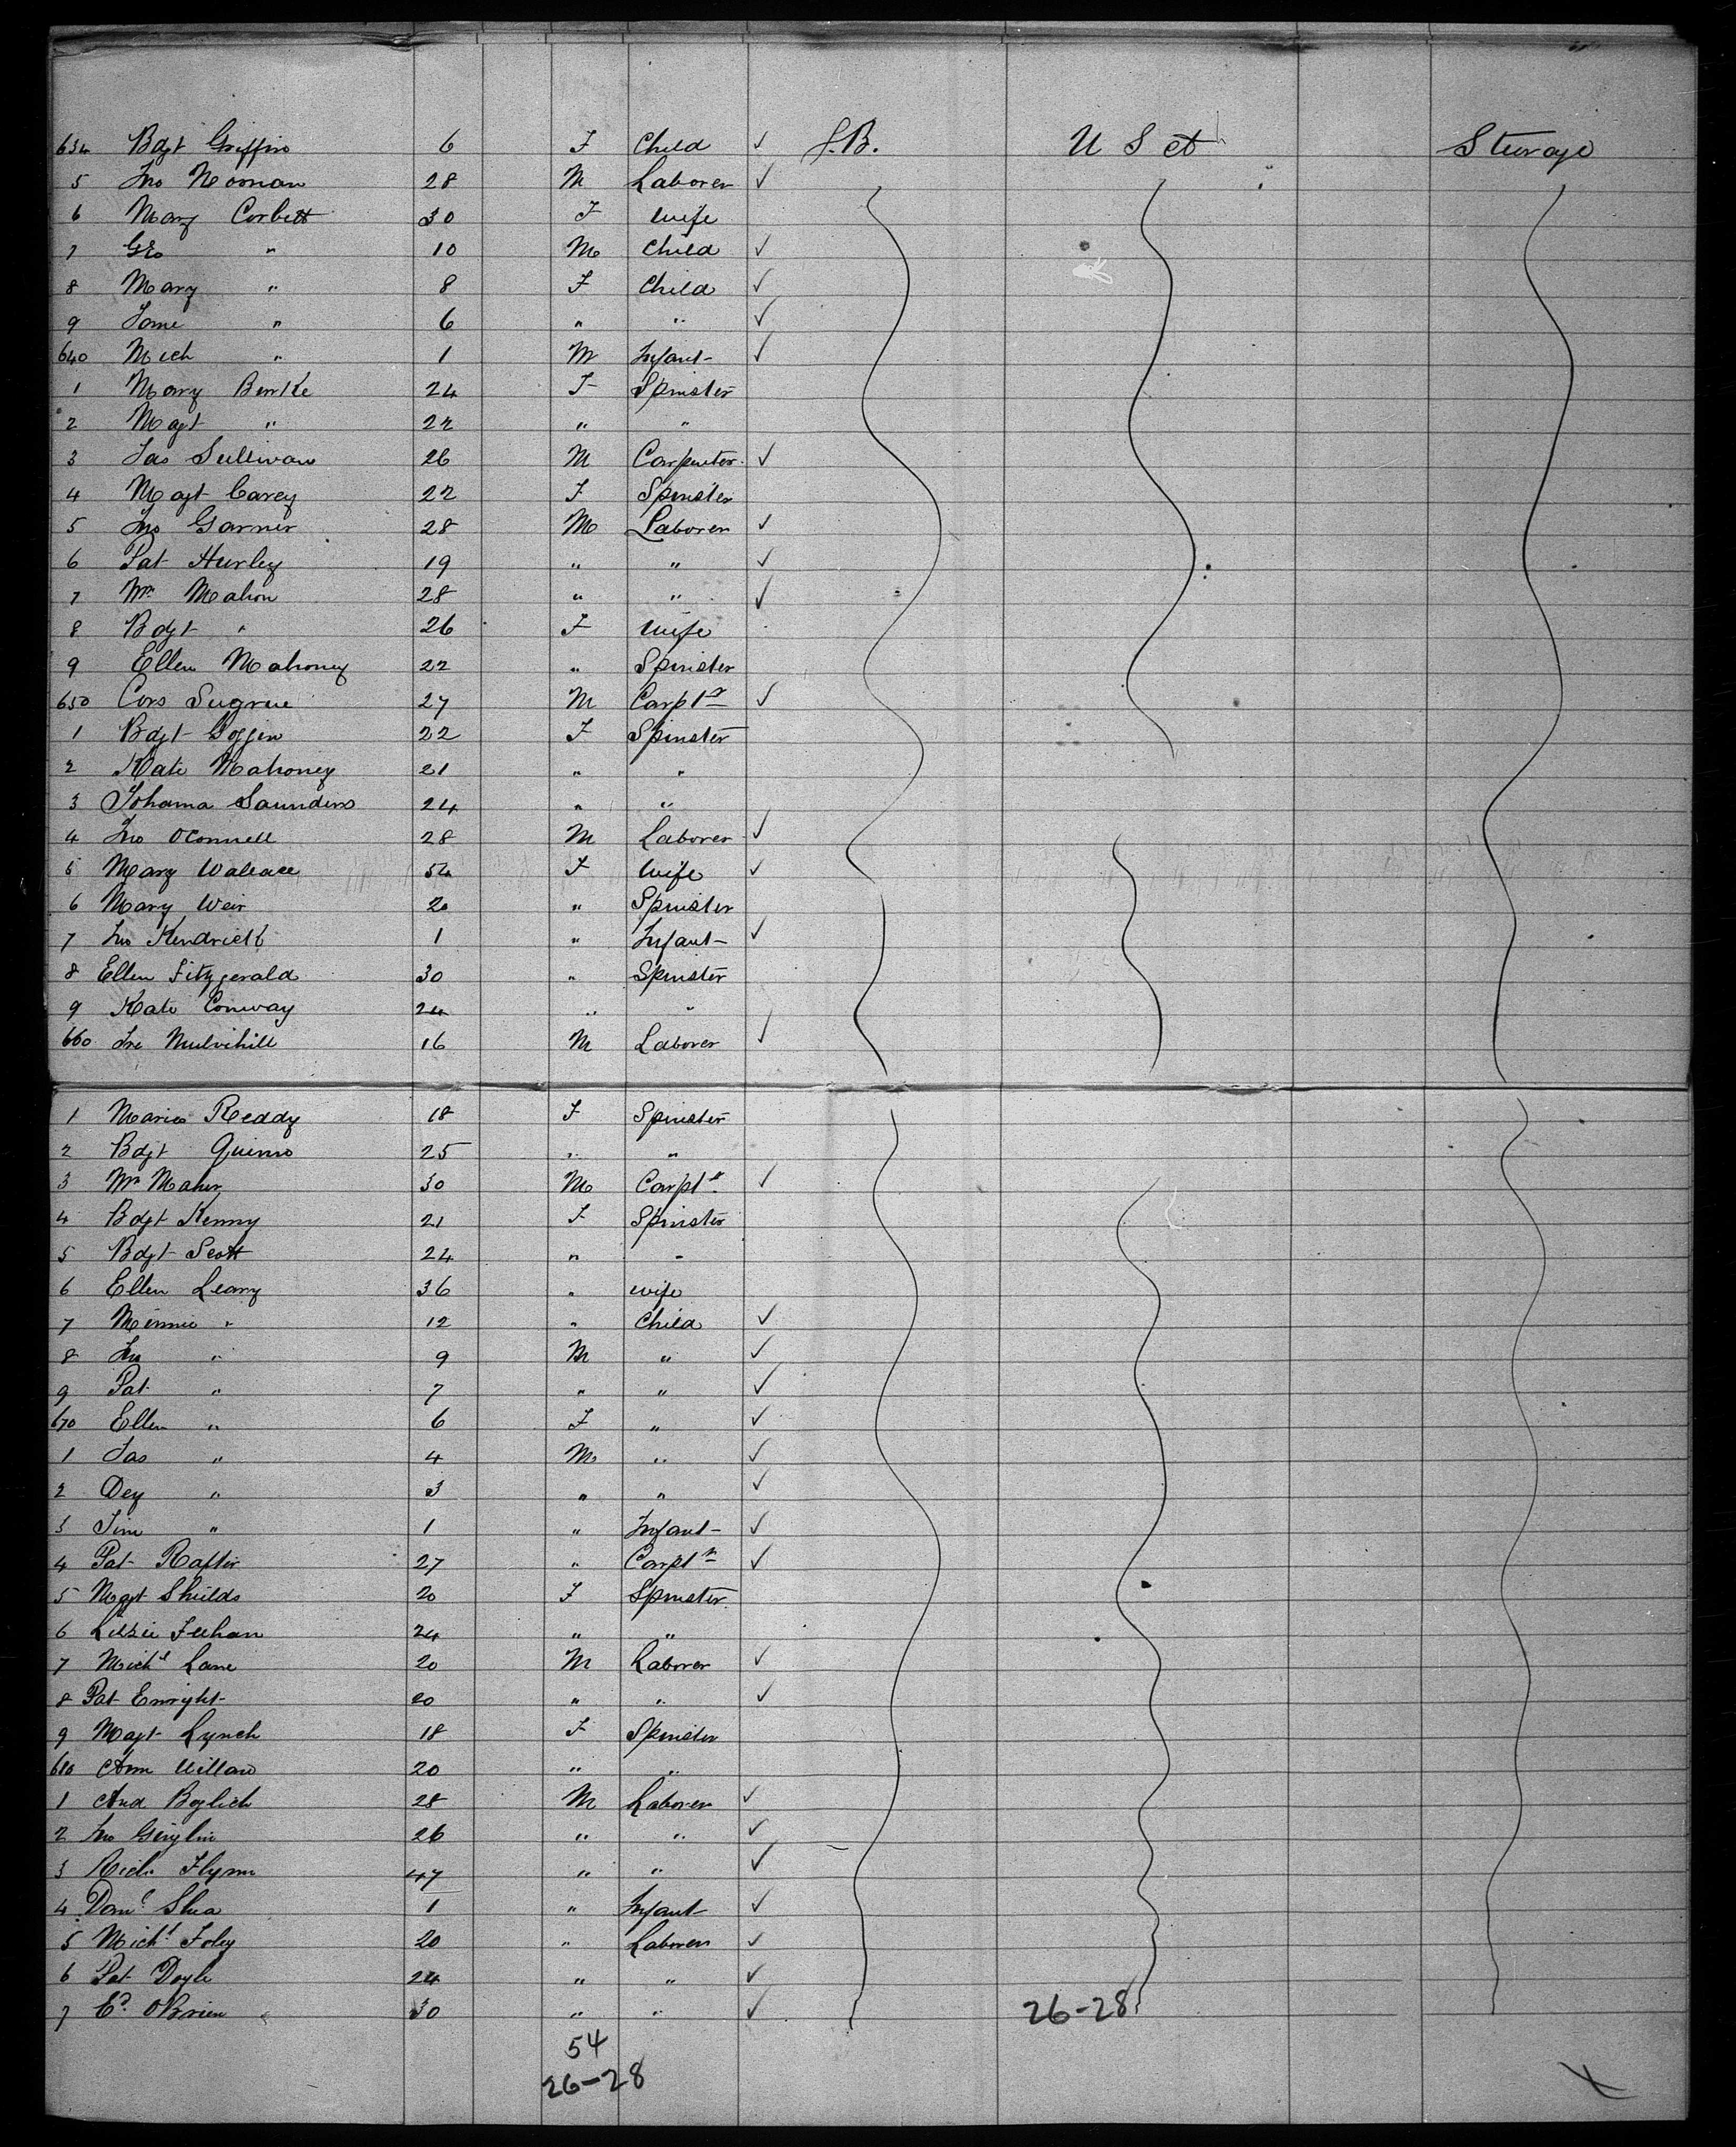 634 Bdgt Griffin 6 F Child ✓ G.B. U S A Steerage
5 Jno Noonan 28 M Laborer ✓
6 Mary Corbett 30 F Wife
7 Geo " 10 M Child ✓
8 Mary " 8 F Child ✓
9 Jane " 6 " " ✓
640 Mich " 1 M Infant ✓
1 Mary Burke 24 F Spinster
2 Magt " 22 " "
3 Jas Sullivan 26 M Carpenter ✓
4 Magt Carey 22 F Spinster
5 Jno Garner 28 M Laborer ✓
6 Pat Hurley 19 " " ✓
7 Wm Mahon 28 " " ✓
8 Bdgt " 26 F Wife
9 Ellen Mahoney 22 " Spinster
650 Cors Sugrue 27 M Carptr ✓
1 Bdgt Goggin 22 F Spinster
2 Kate Mahoney 21 " "
3 Johanna Saunders 24 " "
4 Jno OConnell 28 M Laborer ✓
5 Mary Wallace 54 F Wife ✓
6 Mary Weir 20 " Spinster
7 Jno Kendrick 1 " Infant ✓
8 Ellen Fitzgerald 30 " Spinster
9 Kate Conway 24 " "
660 Jre Mulvihill 16 M Laborer ✓
1 Maria Reddy 18 F Spinster
2 Bdgt Quinn 25 " "
3 Wm Maher 30 M Carptr ✓
4 Bdgt Kenny 21 F Spinster
5 Bdgt Scott 24 " "
6 Ellen Leary 36 " wife
7 Minnie " 12 " Child ✓
8 Jno " 9 M " ✓
9 Pat " 7 " " ✓
670 Ellen " 6 F " ✓
1 Jas " 4 M " ✓
2 Dey " 3 " " ✓
3 Tim " 1 " Infant ✓
4 Pat Rafter 27 " Carptr ✓
5 Magt Shields 20 F Spinster
6 Lizzie Feehan 24 " "
7 Michl Lane 20 M Laborer ✓
8 Pat Enright 20 " " ✓
9 Magt Lynch 18 F Spinster
680 Ann 20 " "
1 And Boylich 28 M Laborer ✓
2 Jno 26 " " ✓
3 Rich Flynn 47 " " ✓
4 Danl Shea 1 " Infant ✓
5 Michl Foley 20 " Laborer ✓
6 Pat Doyle 24 " " ✓
7 Ed OBrien 30 " " ✓ 26-28
54
26-28